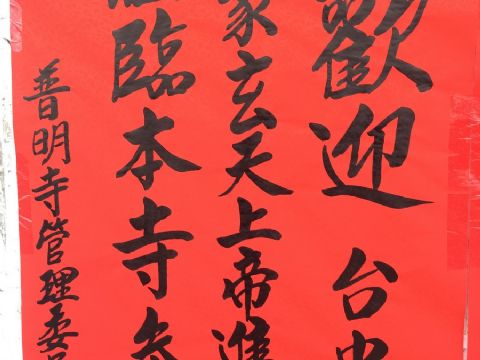 歡迎 台中
家玄天上帝進
臨本寺參
普明寺管理委員